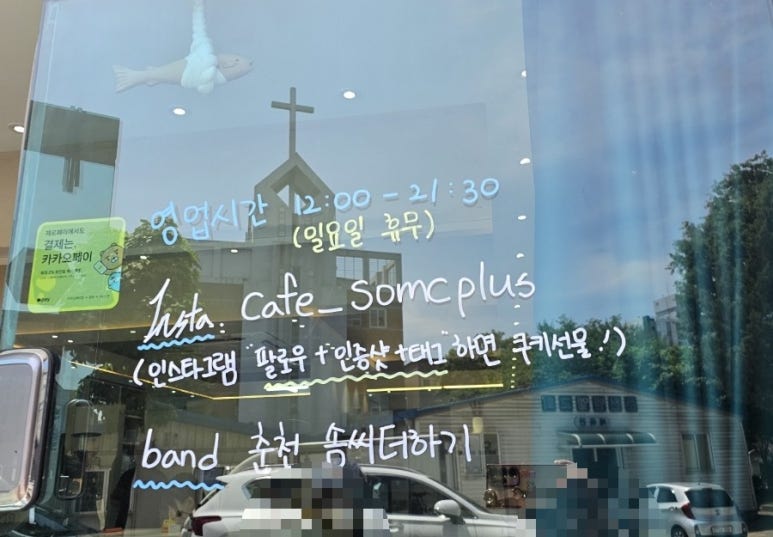 영업시간 12:00 - 21:30
(일요일 휴무)
결제는,
카카오페이
Insta. cafe_somcplus
(인스타그램 "팔로우+인증샷+태그"하면 쿠키선물!)
band 춘천 솜씨더하기